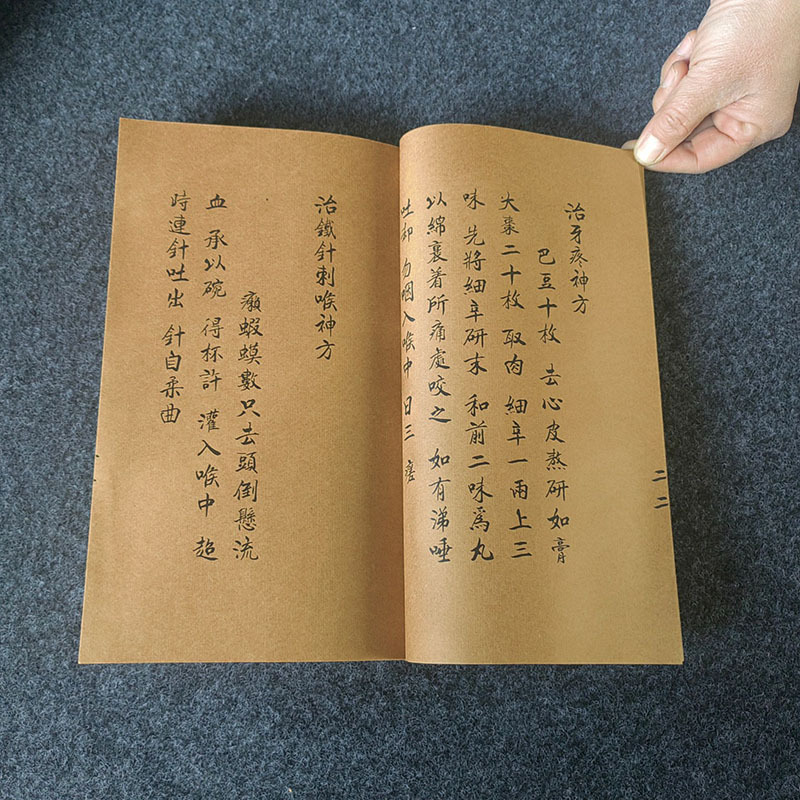 治牙疼神方
巴豆十枚 去心皮熬研如膏
大棗二十枚 取肉 細辛一兩上三
味 先將細辛研末 和前二味爲丸
以綿裹着所痛處咬之 如有涕唾
吐却 勿咽入喉中 日三 瘥
二二
治鐵針刺喉神方
癩蝦蟆數只去頭倒懸流
血 承以碗 得杯許 灌入喉中 超
時連針吐出 針自柔曲